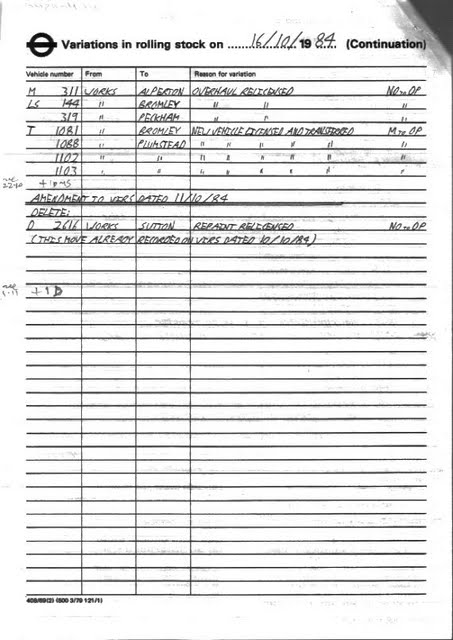 Variations in rolling stock on ........16/10/.1984... (Continuation)
Vehicle number From To Reason for variation
M 311 WORKS ALPERTON OVERHAUL RELICENSED NO to OP
LS 144 " BROMLEY " " "
319 " PECKHAM " " "
T 1081 " BROMLEY NEW VEHICLE LICENSED AND TRANSFERRED M to OP
1088 " PLUMSTEAD " " " " " "
1102 " " " " " " " "
1103 " " " " " " " "
AMENDMENT TO VIRS DATED 11/10/84
DELETE:
D 2616 WORKS SUTTON REPAINT RELICENSED NO to OP
(THIS MOVE ALREADY RECORDED ON VIRS DATED 10/10/84)
+1D
409/69(2) (500 3/79 121/1)